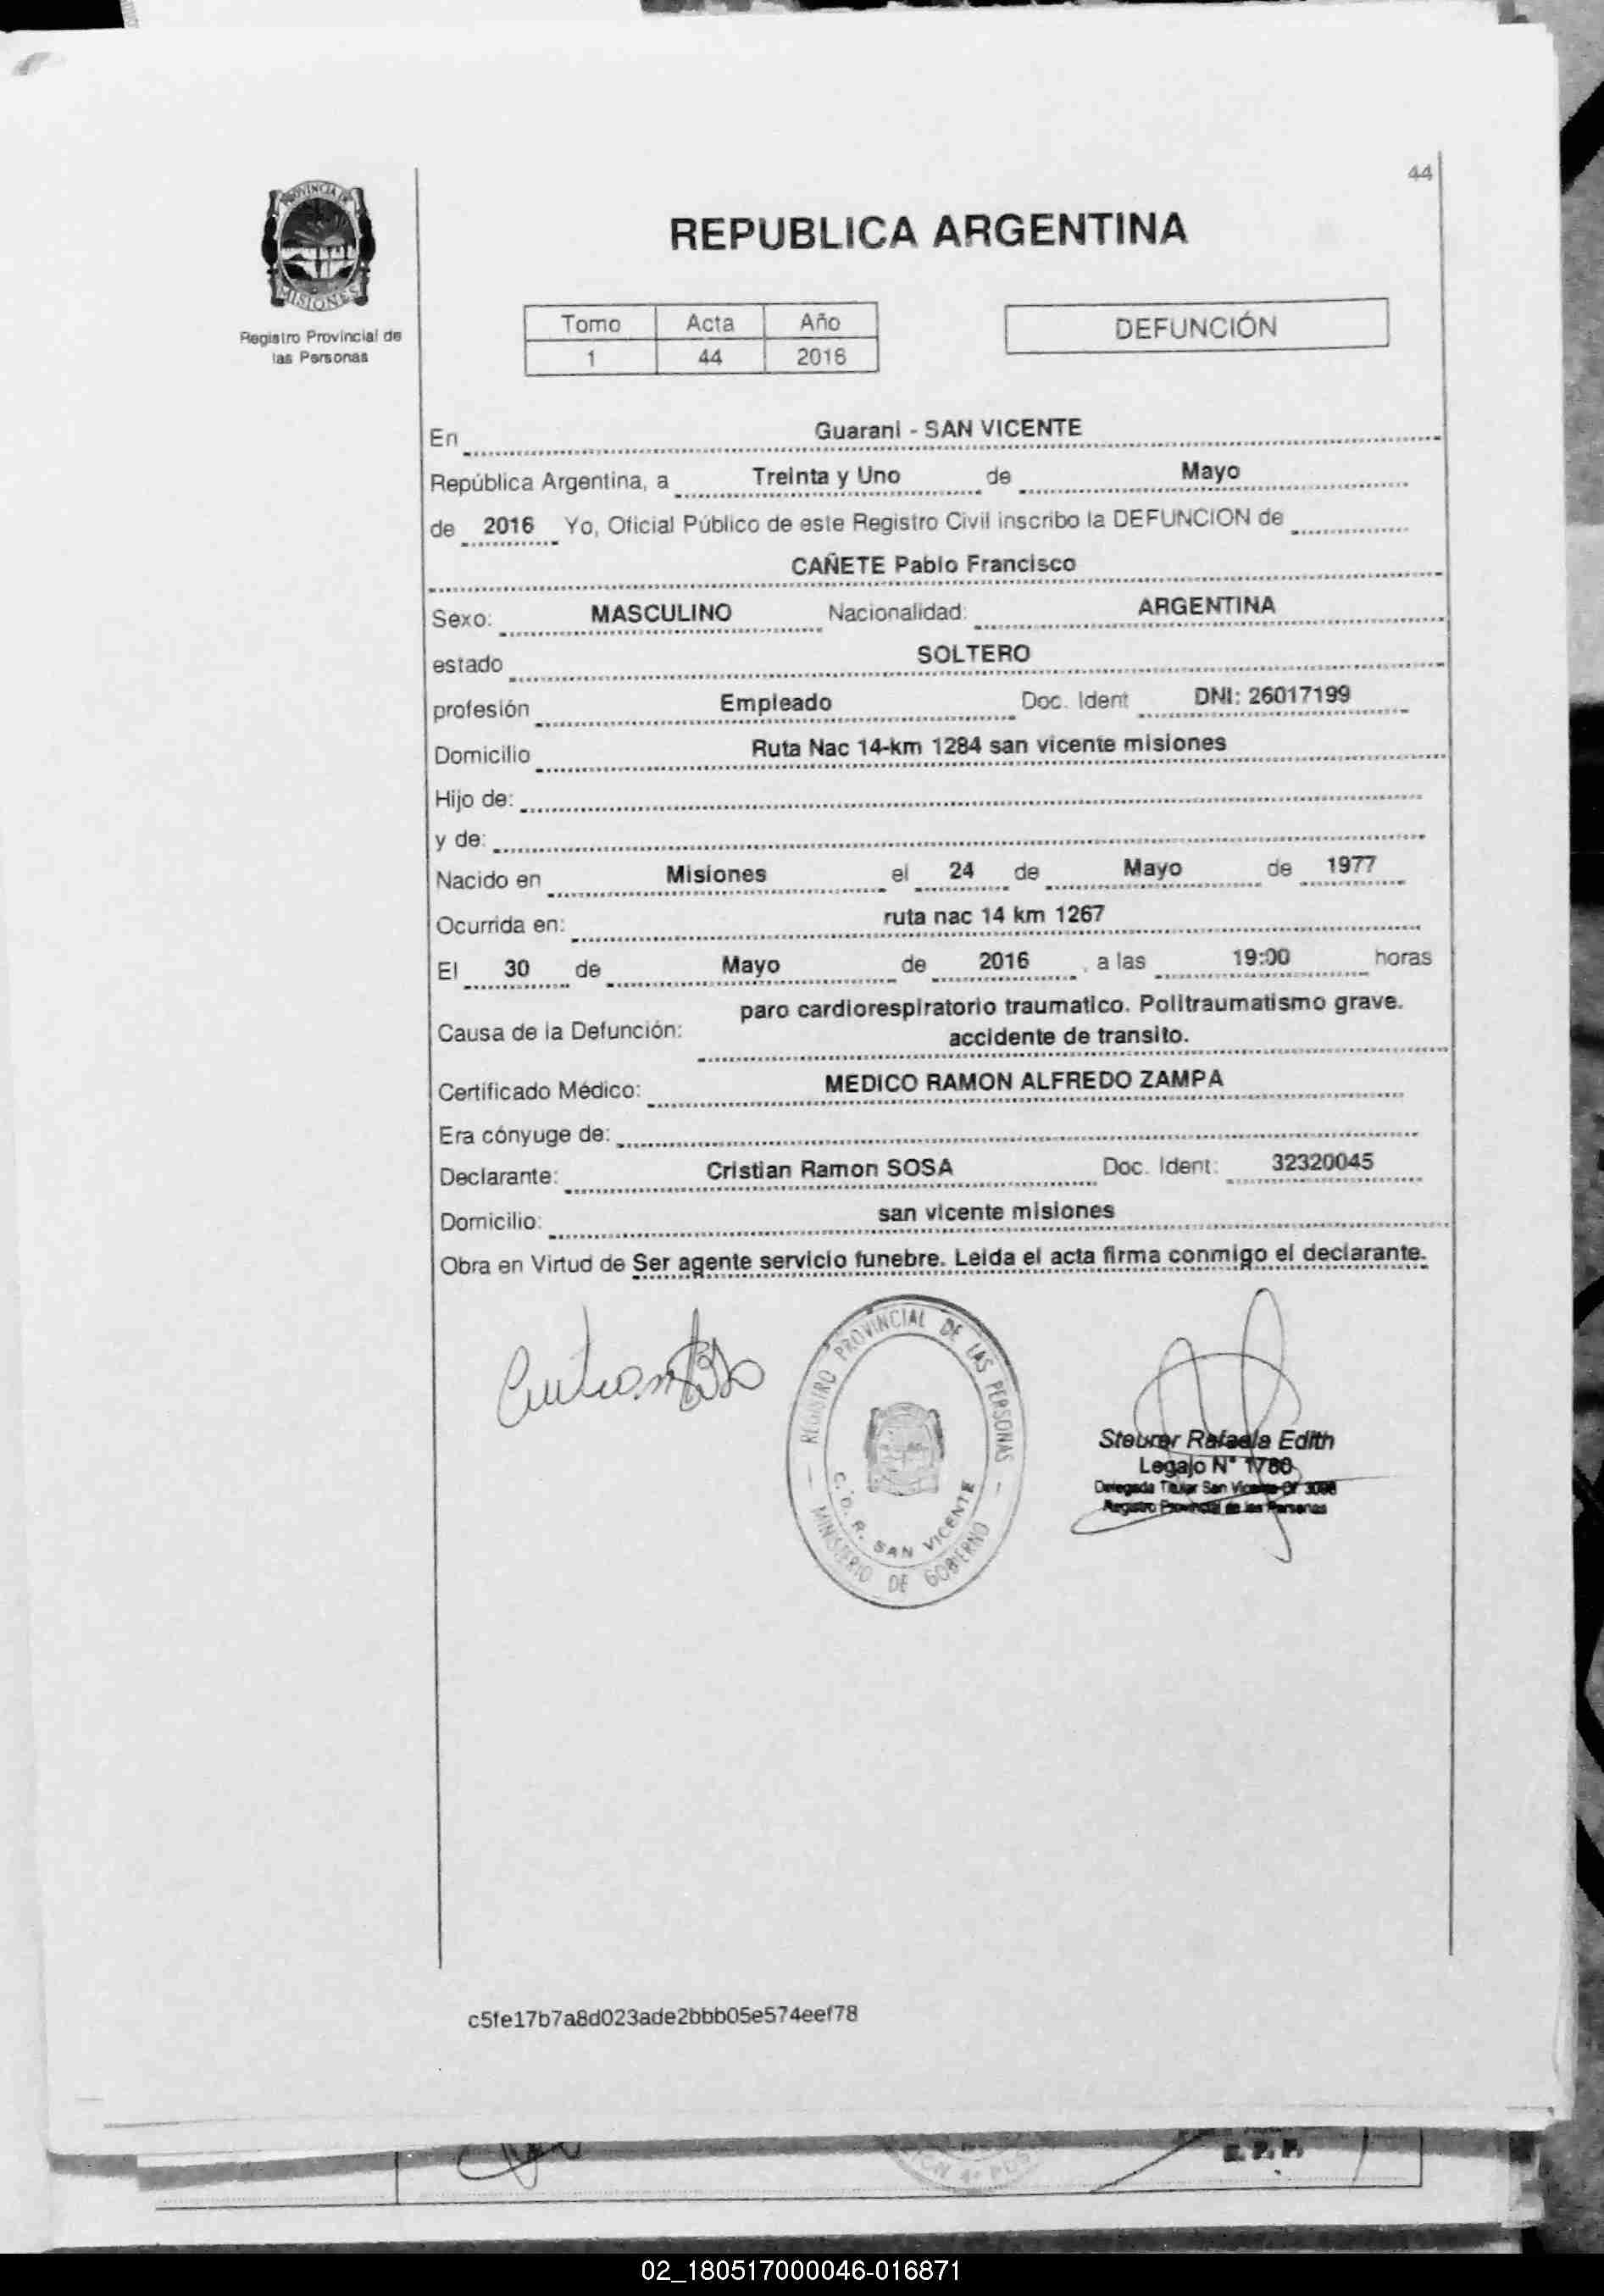 44
PROVINCIA DE
MISIONES
Registro Provincial de
las Personas
REPUBLICA ARGENTINA
Tomo Acta Año
1 44 2016
DEFUNCIÓN
En Guarani - SAN VICENTE
República Argentina, a Treinta y Uno de Mayo
de 2016 Yo, Oficial Público de este Registro Civil inscribo la DEFUNCION de
CAÑETE Pablo Francisco
Sexo: MASCULINO Nacionalidad: ARGENTINA
estado SOLTERO
profesión Empleado Doc. Ident DNI: 26017199
Domicilio Ruta Nac 14-km 1284 san vicente misiones
Hijo de:
y de:
Nacido en Misiones el 24 de Mayo de 1977
Ocurrida en: ruta nac 14 km 1267
El 30 de Mayo de 2016 , a las 19:00 horas
paro cardiorespiratorio traumatico. Politraumatismo grave.
Causa de la Defunción: accidente de transito.
Certificado Médico: MEDICO RAMON ALFREDO ZAMPA
Era cónyuge de:
Declarante: Cristian Ramon SOSA Doc. Ident: 32320045
Domicilio: san vicente misiones
Obra en Virtud de Ser agente servicio funebre. Leida el acta firma conmigo el declarante.
REGISTRO PROVINCIAL DE LAS PERSONAS
C. D. R. SAN VICENTE
MINISTERIO DE GOBIERNO
Steurer Rafaela Edith
Legajo N° 1780
Delegada Titular San Vicente-Of 3098
Registro Provincial de las Personas
c5fe17b7a8d023ade2bbb05e574eef78
E. P. P.
02_180517000046-016871